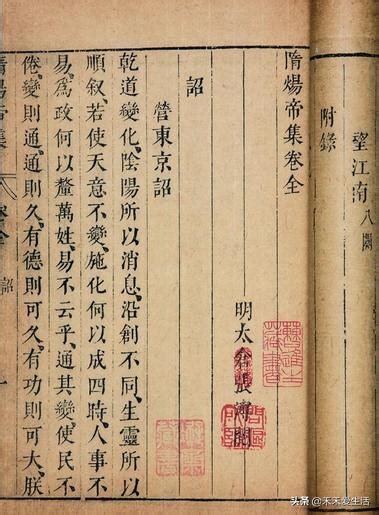 望江南八闋
附錄
隋煬帝集卷全
明太倉張溥閱
詔
營東京詔
乾道變化、陰陽所以消息、沿創不同、生靈所以
順叙、若使天意不變、施化何以成四時、人事不
易、爲政何以釐萬姓、易不云乎、通其變、使民不
倦、變則通、通則久、有德則可久、有功則可大、朕
隋煬帝集 卷全 詔 一
头条 @禾禾爱生活